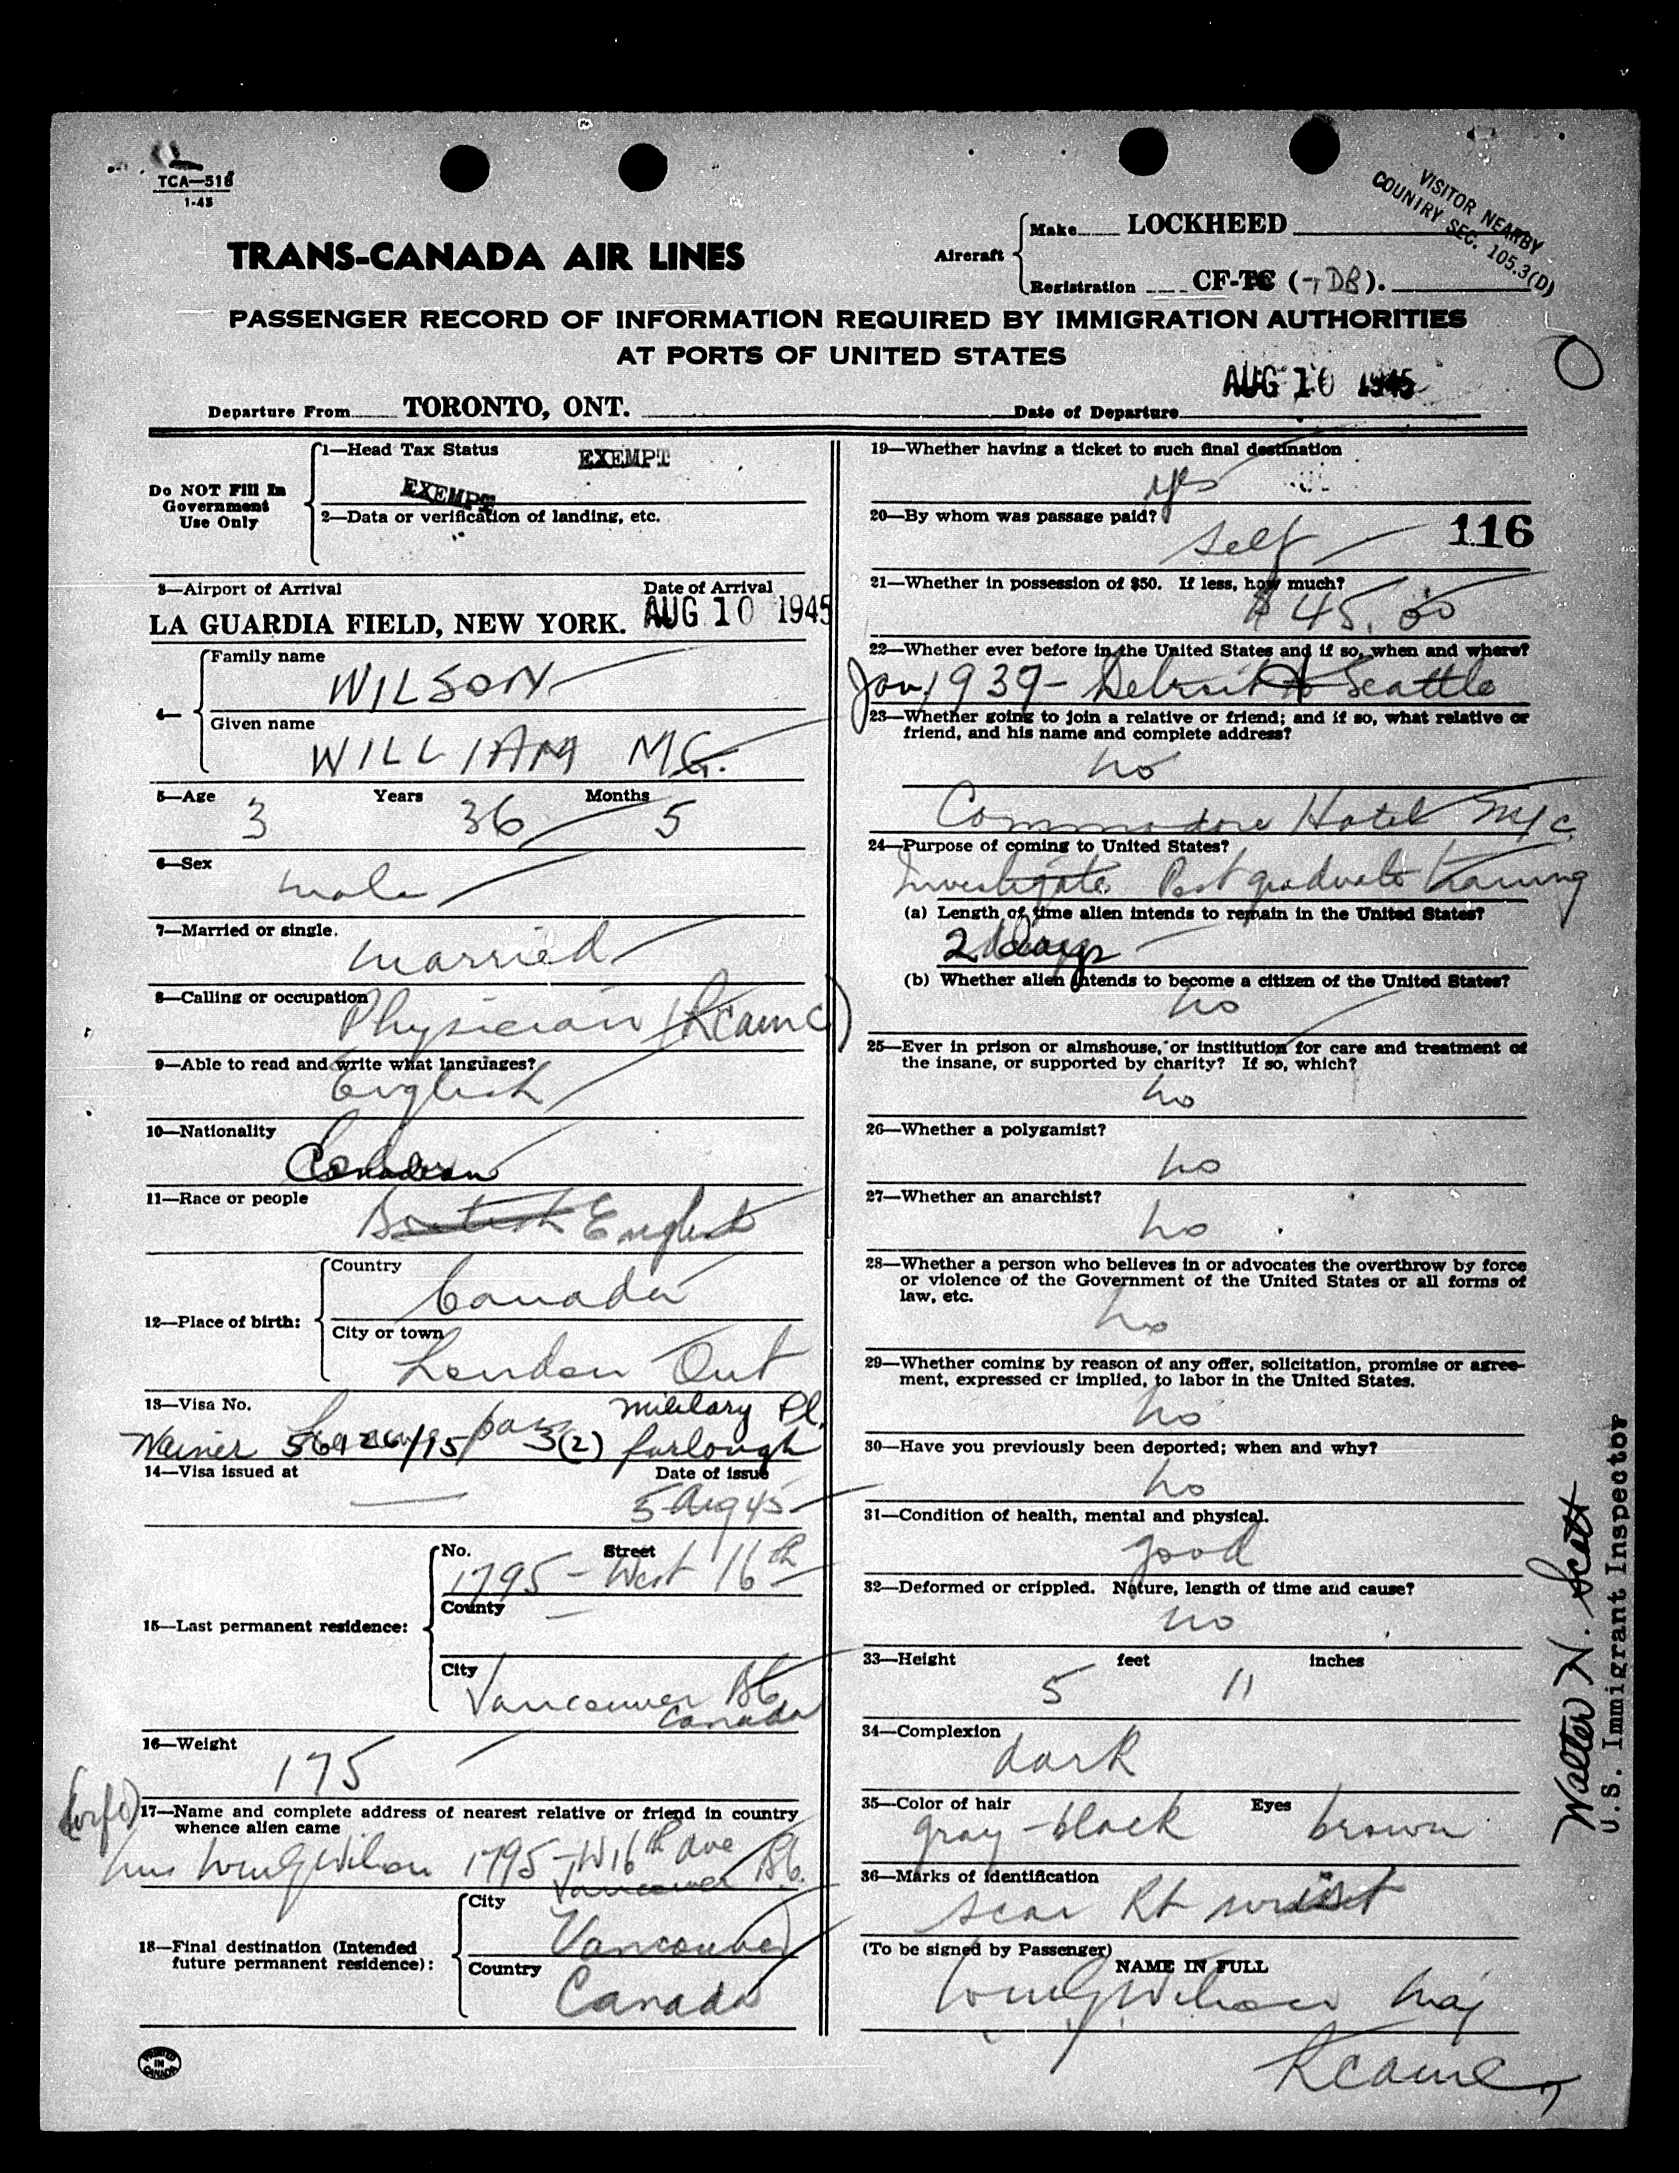 TCA—518
1-43
VISITOR NEARBY
COUNTRY SEC. 105.3(D)
TRANS-CANADA AIR LINES
Aircraft
Make LOCKHEED
Registration CF-TC (-TDB).
PASSENGER RECORD OF INFORMATION REQUIRED BY IMMIGRATION AUTHORITIES
AT PORTS OF UNITED STATES
Departure From TORONTO, ONT.
Date of Departure AUG 10 1945
Do NOT Fill In
Government
Use Only
1—Head Tax Status EXEMPT
EXEMPT
2—Data or verification of landing, etc.
3—Airport of Arrival Date of Arrival
LA GUARDIA FIELD, NEW YORK. AUG 10 1945
4—
Family name
WILSON
Given name
WILLIAM G.
5—Age Years Months
3 36 5
6—Sex
male
7—Married or single.
married
8—Calling or occupation
Physician (RCAMC)
9—Able to read and write what languages?
English
10—Nationality
Canadian
11—Race or people
British English
12—Place of birth:
Country
Canada
City or town
London Ont
13—Visa No.
military Pl.
pass
3(2) furlough
14—Visa issued at Date of issue
— 5 Aug 45
15—Last permanent residence:
No. Street
1795 - West 16th
County
—
City
Vancouver BC
Canada
16—Weight
175
(wife)
17—Name and complete address of nearest relative or friend in country
whence alien came
Mrs Wm G Wilson 1795 - W 16th ave
Vancouver B.C.
18—Final destination (Intended
future permanent residence):
City
Vancouver
Country
Canada
PRINTED
IN
CANADA
19—Whether having a ticket to such final destination
yes
20—By whom was passage paid?
self
116
21—Whether in possession of $50. If less, how much?
$45.00
22—Whether ever before in the United States and if so, when and where?
1939 - Detroit to Seattle
23—Whether going to join a relative or friend; and if so, what relative or
friend, and his name and complete address?
no
Commodore Hotel NYC
24—Purpose of coming to United States?
Investigate Post graduate training
(a) Length of time alien intends to remain in the United States?
2 days
(b) Whether alien intends to become a citizen of the United States?
no
25—Ever in prison or almshouse, or institution for care and treatment of
the insane, or supported by charity? If so, which?
no
26—Whether a polygamist?
no
27—Whether an anarchist?
no
28—Whether a person who believes in or advocates the overthrow by force
or violence of the Government of the United States or all forms of
law, etc.
no
29—Whether coming by reason of any offer, solicitation, promise or agree-
ment, expressed or implied, to labor in the United States.
no
30—Have you previously been deported; when and why?
no
31—Condition of health, mental and physical.
good
32—Deformed or crippled. Nature, length of time and cause?
no
33—Height feet inches
5 11
34—Complexion
dark
35—Color of hair Eyes
gray-black brown
36—Marks of identification
scar Rt wrist
(To be signed by Passenger)
NAME IN FULL
Wm G Wilson Maj
RCAMC
Walter N. Scott
U.S. Immigrant Inspector